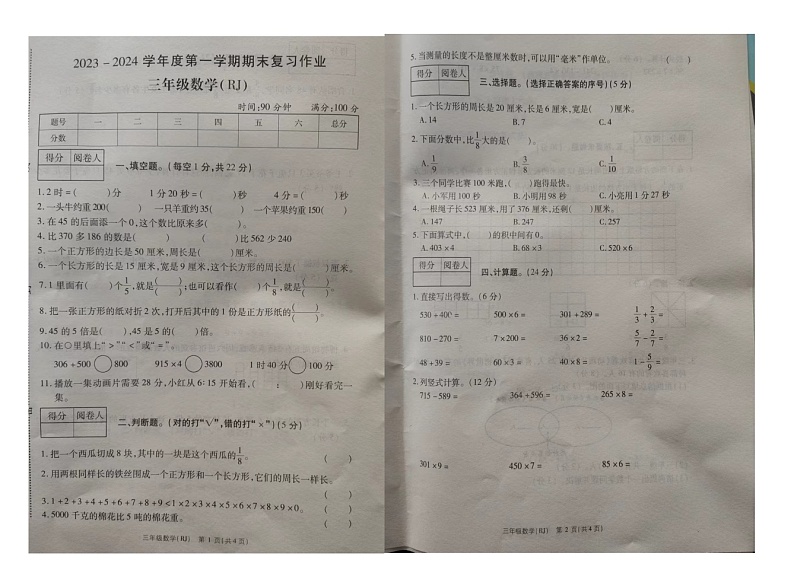 2023-2024 学年度第一学期期末复习作业
三年级数学(RJ)
时间:90 分钟 满分:100 分
题号 一 二 三 四 五 六 总分
分数
得分 阅卷人
一、填空题。(每空 1 分,共 22 分)
1. 2 时=( )分 1 分 20 秒=( )秒 4 分=( )秒
2. 一头牛约重 200( ) 一只羊约重 35( ) 一个苹果约重 150( )
3. 在 45 的后面添一个 0,这个数比原来多( )。
4. 比 370 多 186 的数是( ) ( )比 562 少 240
5. 一个正方形的边长是 50 厘米,周长是( )厘米。
6. 一个长方形的长是 15 厘米,宽是 9 厘米,这个长方形的周长是( )厘米。
7. 1 里面有( )个1/5,就是( )/( );也可以看作( )个1/8,就是( )/( )。
8. 把一张正方形的纸对折 2 次,打开后其中的 1 份是正方形纸的( )/( )。
9. 45 的 5 倍是( ),45 是 5 的( )倍。
10. 在○里填上“>”“<”或“=”。
306+500○800 915×4○3800 1 时 40 分○100 分
11. 播放一集动画片需要 28 分,小红从 6:15 开始看,( : )刚好看完一
集。
得分 阅卷人
二、判断题。(对的打“√”,错的打“×”)(5 分)
1. 把一个西瓜切成 8 块,其中的一块是这个西瓜的1/8。 ( )
2. 用两根同样长的铁丝围成一个正方形和一个长方形,它们的周长一样长。
( )
3. 1+2+3+4+5+6+7+8+9<1×2×3×4×5×6×7×8×9×0。 ( )
4. 5000 千克的棉花比 5 吨的棉花重。 ( )
三年级数学(RJ) 第 1 页(共 4 页)
5. 当测量的长度不是整厘米数时,可以用“毫米”作单位。 ( )
得分 阅卷人
三、选择题。(选择正确答案的序号)(5 分)
1. 一个长方形的周长是 20 厘米,长是 6 厘米,宽是( )厘米。
A. 14 B. 7 C. 4
2. 下面分数中,比1/8大的是( )。
A. 1/9 B. 3/8 C. 1/10
3. 三个同学比赛 100 米跑,( )跑得最快。
A. 小军用 100 秒 B. 小明用 98 秒 C. 小亮用 1 分 27 秒
4. 一根绳子长 523 厘米,用了 376 厘米,还剩( )厘米。
A. 147 B. 247 C. 257
5. 下面算式中,( )的积中间有 0。
A. 403×4 B. 68×3 C. 520×6
得分 阅卷人
四、计算题。(24 分)
1. 直接写出得数。(6 分)
530+400= 500×6= 301+289= 1/3+2/3=
810-270= 7×200= 36×2= 5/7-2/7=
48+39= 60×3= 40×8= 1-5/9=
2. 列竖式计算。(12 分)
715-589= 364+596= 265×8=
301×9= 450×7= 85×6=
三年级数学(RJ) 第 2 页(共 4 页)